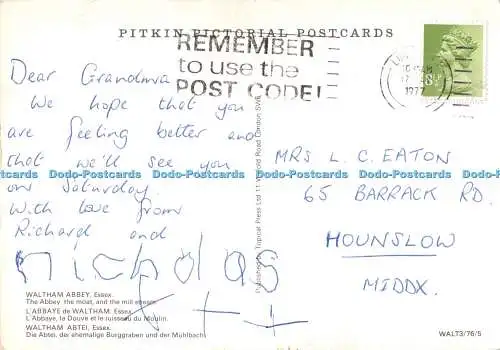 PITKIN PICTORIAL POSTCARDS
REMEMBER
to use the
POST CODE!
1977
Dear Grandma
We hope that you
are feeling better and
that we'll see you
on Saturday.
With love from
Richard and
nicholas
MRS L. C. EATON
65 BARRACK RD.
HOUNSLOW
MIDDX.
Dodo-Postcards Dodo-Postcards Dodo-Postcards Dodo-Postcards
WALTHAM ABBEY, Essex.
The Abbey, the moat, and the mill stream.
L'ABBAYE de WALTHAM, Essex.
L'Abbaye, la Douve et le ruisseau du Moulin.
WALTHAM ABTEI, Essex.
Die Abtei, die ehemalige Burggraben und der Mühlbach.
WALT3/76/5